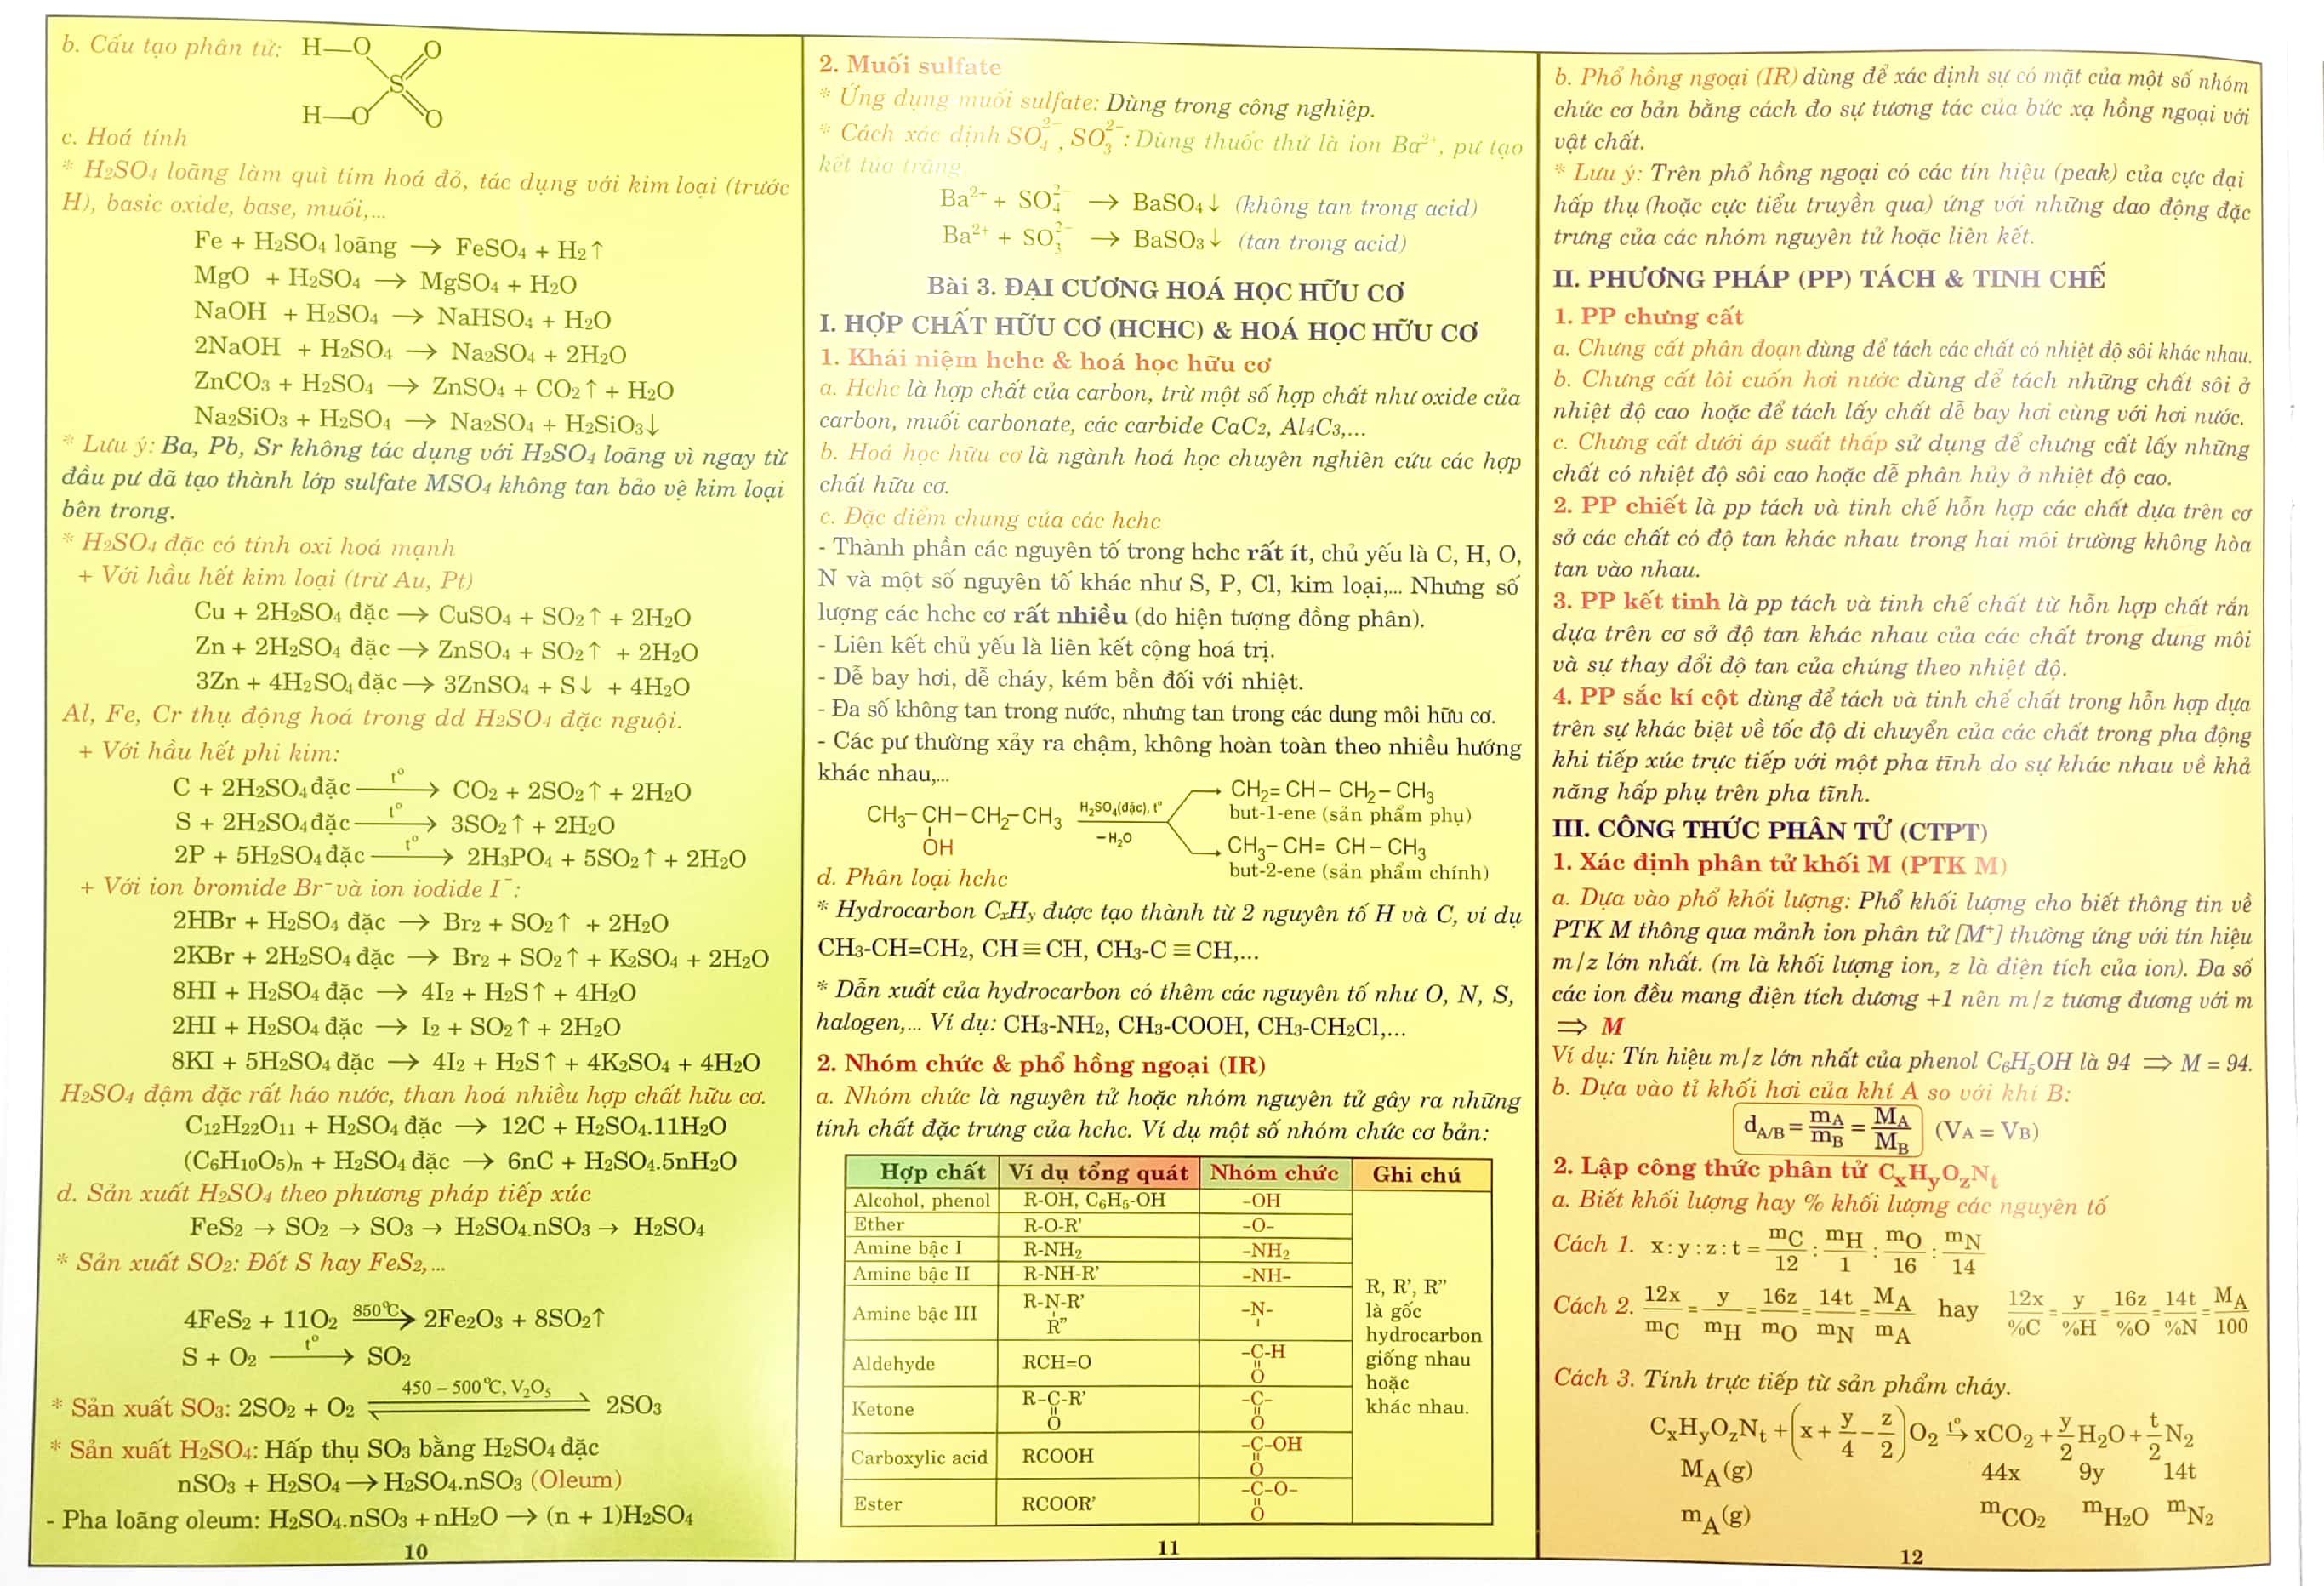 b. Cấu tạo phân tử: H—O O
S
H—O O
c. Hoá tính
* H₂SO₄ loãng làm quì tím hoá đỏ, tác dụng với kim loại (trước
H), basic oxide, base, muối,...
Fe + H₂SO₄ loãng → FeSO₄ + H₂↑
MgO + H₂SO₄ → MgSO₄ + H₂O
NaOH + H₂SO₄ → NaHSO₄ + H₂O
2NaOH + H₂SO₄ → Na₂SO₄ + 2H₂O
ZnCO₃ + H₂SO₄ → ZnSO₄ + CO₂↑ + H₂O
Na₂SiO₃ + H₂SO₄ → Na₂SO₄ + H₂SiO₃↓
* Lưu ý: Ba, Pb, Sr không tác dụng với H₂SO₄ loãng vì ngay từ
đầu pư đã tạo thành lớp sulfate MSO₄ không tan bảo vệ kim loại
bên trong.
* H₂SO₄ đặc có tính oxi hoá mạnh
+ Với hầu hết kim loại (trừ Au, Pt)
Cu + 2H₂SO₄ đặc → CuSO₄ + SO₂↑ + 2H₂O
Zn + 2H₂SO₄ đặc → ZnSO₄ + SO₂↑ + 2H₂O
3Zn + 4H₂SO₄ đặc → 3ZnSO₄ + S↓ + 4H₂O
Al, Fe, Cr thụ động hoá trong dd H₂SO₄ đặc nguội.
+ Với hầu hết phi kim:
C + 2H₂SO₄ đặc —t°→ CO₂ + 2SO₂↑ + 2H₂O
S + 2H₂SO₄ đặc —t°→ 3SO₂↑ + 2H₂O
2P + 5H₂SO₄ đặc —t°→ 2H₃PO₄ + 5SO₂↑ + 2H₂O
+ Với ion bromide Br⁻ và ion iodide I⁻:
2HBr + H₂SO₄ đặc → Br₂ + SO₂↑ + 2H₂O
2KBr + 2H₂SO₄ đặc → Br₂ + SO₂↑ + K₂SO₄ + 2H₂O
8HI + H₂SO₄ đặc → 4I₂ + H₂S↑ + 4H₂O
2HI + H₂SO₄ đặc → I₂ + SO₂↑ + 2H₂O
8KI + 5H₂SO₄ đặc → 4I₂ + H₂S↑ + 4K₂SO₄ + 4H₂O
H₂SO₄ đậm đặc rất háo nước, than hoá nhiều hợp chất hữu cơ.
C₁₂H₂₂O₁₁ + H₂SO₄ đặc → 12C + H₂SO₄.11H₂O
(C₆H₁₀O₅)n + H₂SO₄ đặc → 6nC + H₂SO₄.5nH₂O
d. Sản xuất H₂SO₄ theo phương pháp tiếp xúc
FeS₂ → SO₂ → SO₃ → H₂SO₄.nSO₃ → H₂SO₄
* Sản xuất SO₂: Đốt S hay FeS₂,...
4FeS₂ + 11O₂ —850°C→ 2Fe₂O₃ + 8SO₂↑
S + O₂ —t°→ SO₂
* Sản xuất SO₃: 2SO₂ + O₂ ⇌ (450 – 500°C, V₂O₅) 2SO₃
* Sản xuất H₂SO₄: Hấp thụ SO₃ bằng H₂SO₄ đặc
nSO₃ + H₂SO₄ → H₂SO₄.nSO₃ (Oleum)
- Pha loãng oleum: H₂SO₄.nSO₃ + nH₂O → (n + 1)H₂SO₄
10
2. Muối sulfate
* Ứng dụng muối sulfate: Dùng trong công nghiệp.
* Cách xác định SO₄²⁻, SO₃²⁻: Dùng thuốc thử là ion Ba²⁺, pư tạo
kết tủa trắng.
Ba²⁺ + SO₄²⁻ → BaSO₄↓ (không tan trong acid)
Ba²⁺ + SO₃²⁻ → BaSO₃↓ (tan trong acid)
Bài 3. ĐẠI CƯƠNG HOÁ HỌC HỮU CƠ
I. HỢP CHẤT HỮU CƠ (HCHC) & HOÁ HỌC HỮU CƠ
1. Khái niệm hchc & hoá học hữu cơ
a. Hchc là hợp chất của carbon, trừ một số hợp chất như oxide của
carbon, muối carbonate, các carbide CaC₂, Al₄C₃,...
b. Hoá học hữu cơ là ngành hoá học chuyên nghiên cứu các hợp
chất hữu cơ.
c. Đặc điểm chung của các hchc
- Thành phần các nguyên tố trong hchc rất ít, chủ yếu là C, H, O,
N và một số nguyên tố khác như S, P, Cl, kim loại,... Nhưng số
lượng các hchc cơ rất nhiều (do hiện tượng đồng phân).
- Liên kết chủ yếu là liên kết cộng hoá trị.
- Dễ bay hơi, dễ cháy, kém bền đối với nhiệt.
- Đa số không tan trong nước, nhưng tan trong các dung môi hữu cơ.
- Các pư thường xảy ra chậm, không hoàn toàn theo nhiều hướng
khác nhau,...
CH₂=CH–CH₂–CH₃
but-1-ene (sản phẩm phụ)
CH₃–CH–CH₂–CH₃ H₂SO₄(đặc), t° –H₂O
OH
CH₃–CH=CH–CH₃
but-2-ene (sản phẩm chính)
d. Phân loại hchc
* Hydrocarbon CxHy được tạo thành từ 2 nguyên tố H và C, ví dụ
CH₃-CH=CH₂, CH≡CH, CH₃-C≡CH,...
* Dẫn xuất của hydrocarbon có thêm các nguyên tố như O, N, S,
halogen,... Ví dụ: CH₃-NH₂, CH₃-COOH, CH₃-CH₂Cl,...
2. Nhóm chức & phổ hồng ngoại (IR)
a. Nhóm chức là nguyên tử hoặc nhóm nguyên tử gây ra những
tính chất đặc trưng của hchc. Ví dụ một số nhóm chức cơ bản:
Hợp chất Ví dụ tổng quát Nhóm chức Ghi chú
Alcohol, phenol R-OH, C₆H₅-OH –OH
Ether R-O-R' –O–
Amine bậc I R-NH₂ –NH₂
Amine bậc II R-NH-R' –NH–
Amine bậc III R-N-R' –N–
R''
Aldehyde RCH=O –C-H
O
Ketone R–C-R' –C–
O O
Carboxylic acid RCOOH –C–OH
O
Ester RCOOR' –C–O–
O
R, R', R''
là gốc
hydrocarbon
giống nhau
hoặc
khác nhau.
11
b. Phổ hồng ngoại (IR) dùng để xác định sự có mặt của một số nhóm
chức cơ bản bằng cách đo sự tương tác của bức xạ hồng ngoại với
vật chất.
* Lưu ý: Trên phổ hồng ngoại có các tín hiệu (peak) của cực đại
hấp thụ (hoặc cực tiểu truyền qua) ứng với những dao động đặc
trưng của các nhóm nguyên tử hoặc liên kết.
II. PHƯƠNG PHÁP (PP) TÁCH & TINH CHẾ
1. PP chưng cất
a. Chưng cất phân đoạn dùng để tách các chất có nhiệt độ sôi khác nhau.
b. Chưng cất lôi cuốn hơi nước dùng để tách những chất sôi ở
nhiệt độ cao hoặc để tách lấy chất dễ bay hơi cùng với hơi nước.
c. Chưng cất dưới áp suất thấp sử dụng để chưng cất lấy những
chất có nhiệt độ sôi cao hoặc dễ phân hủy ở nhiệt độ cao.
2. PP chiết là pp tách và tinh chế hỗn hợp các chất dựa trên cơ
sở các chất có độ tan khác nhau trong hai môi trường không hòa
tan vào nhau.
3. PP kết tinh là pp tách và tinh chế chất từ hỗn hợp chất rắn
dựa trên cơ sở độ tan khác nhau của các chất trong dung môi
và sự thay đổi độ tan của chúng theo nhiệt độ.
4. PP sắc kí cột dùng để tách và tinh chế chất trong hỗn hợp dựa
trên sự khác biệt về tốc độ di chuyển của các chất trong pha động
khi tiếp xúc trực tiếp với một pha tĩnh do sự khác nhau về khả
năng hấp phụ trên pha tĩnh.
III. CÔNG THỨC PHÂN TỬ (CTPT)
1. Xác định phân tử khối M (PTK M)
a. Dựa vào phổ khối lượng: Phổ khối lượng cho biết thông tin về
PTK M thông qua mảnh ion phân tử [M⁺] thường ứng với tín hiệu
m/z lớn nhất. (m là khối lượng ion, z là điện tích của ion). Đa số
các ion đều mang điện tích dương +1 nên m/z tương đương với m
⟹ M
Ví dụ: Tín hiệu m/z lớn nhất của phenol C₆H₅OH là 94 ⟹ M = 94.
b. Dựa vào tỉ khối hơi của khí A so với khí B:
d_A/B = m_A/m_B = M_A/M_B (V_A = V_B)
2. Lập công thức phân tử CxHyOzNt
a. Biết khối lượng hay % khối lượng các nguyên tố
Cách 1. x : y : z : t = m_C/12 : m_H/1 : m_O/16 : m_N/14
Cách 2. 12x/m_C = y/m_H = 16z/m_O = 14t/m_N = M_A/m_A hay 12x/%C = y/%H = 16z/%O = 14t/%N = M_A/100
Cách 3. Tính trực tiếp từ sản phẩm cháy.
CxHyOzNt + (x + y/4 − z/2)O₂ —t°→ xCO₂ + y/2 H₂O + t/2 N₂
M_A(g) 44x 9y 14t
m_A(g) m_CO₂ m_H₂O m_N₂
12